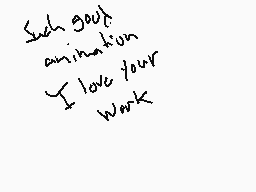 Such good
animation
I love your
work